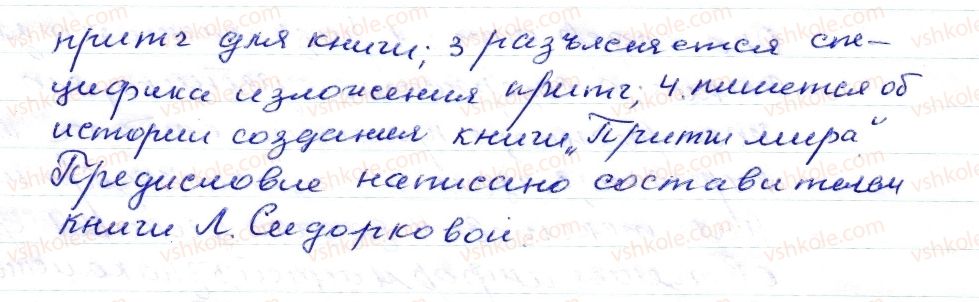 притч для книги; 3 разъясняется спе-
цифика изложения притч; 4. пишется об
истории создания книги „Притчи мира"
Предисловие написано составителем
книги Л. Сидорковой.